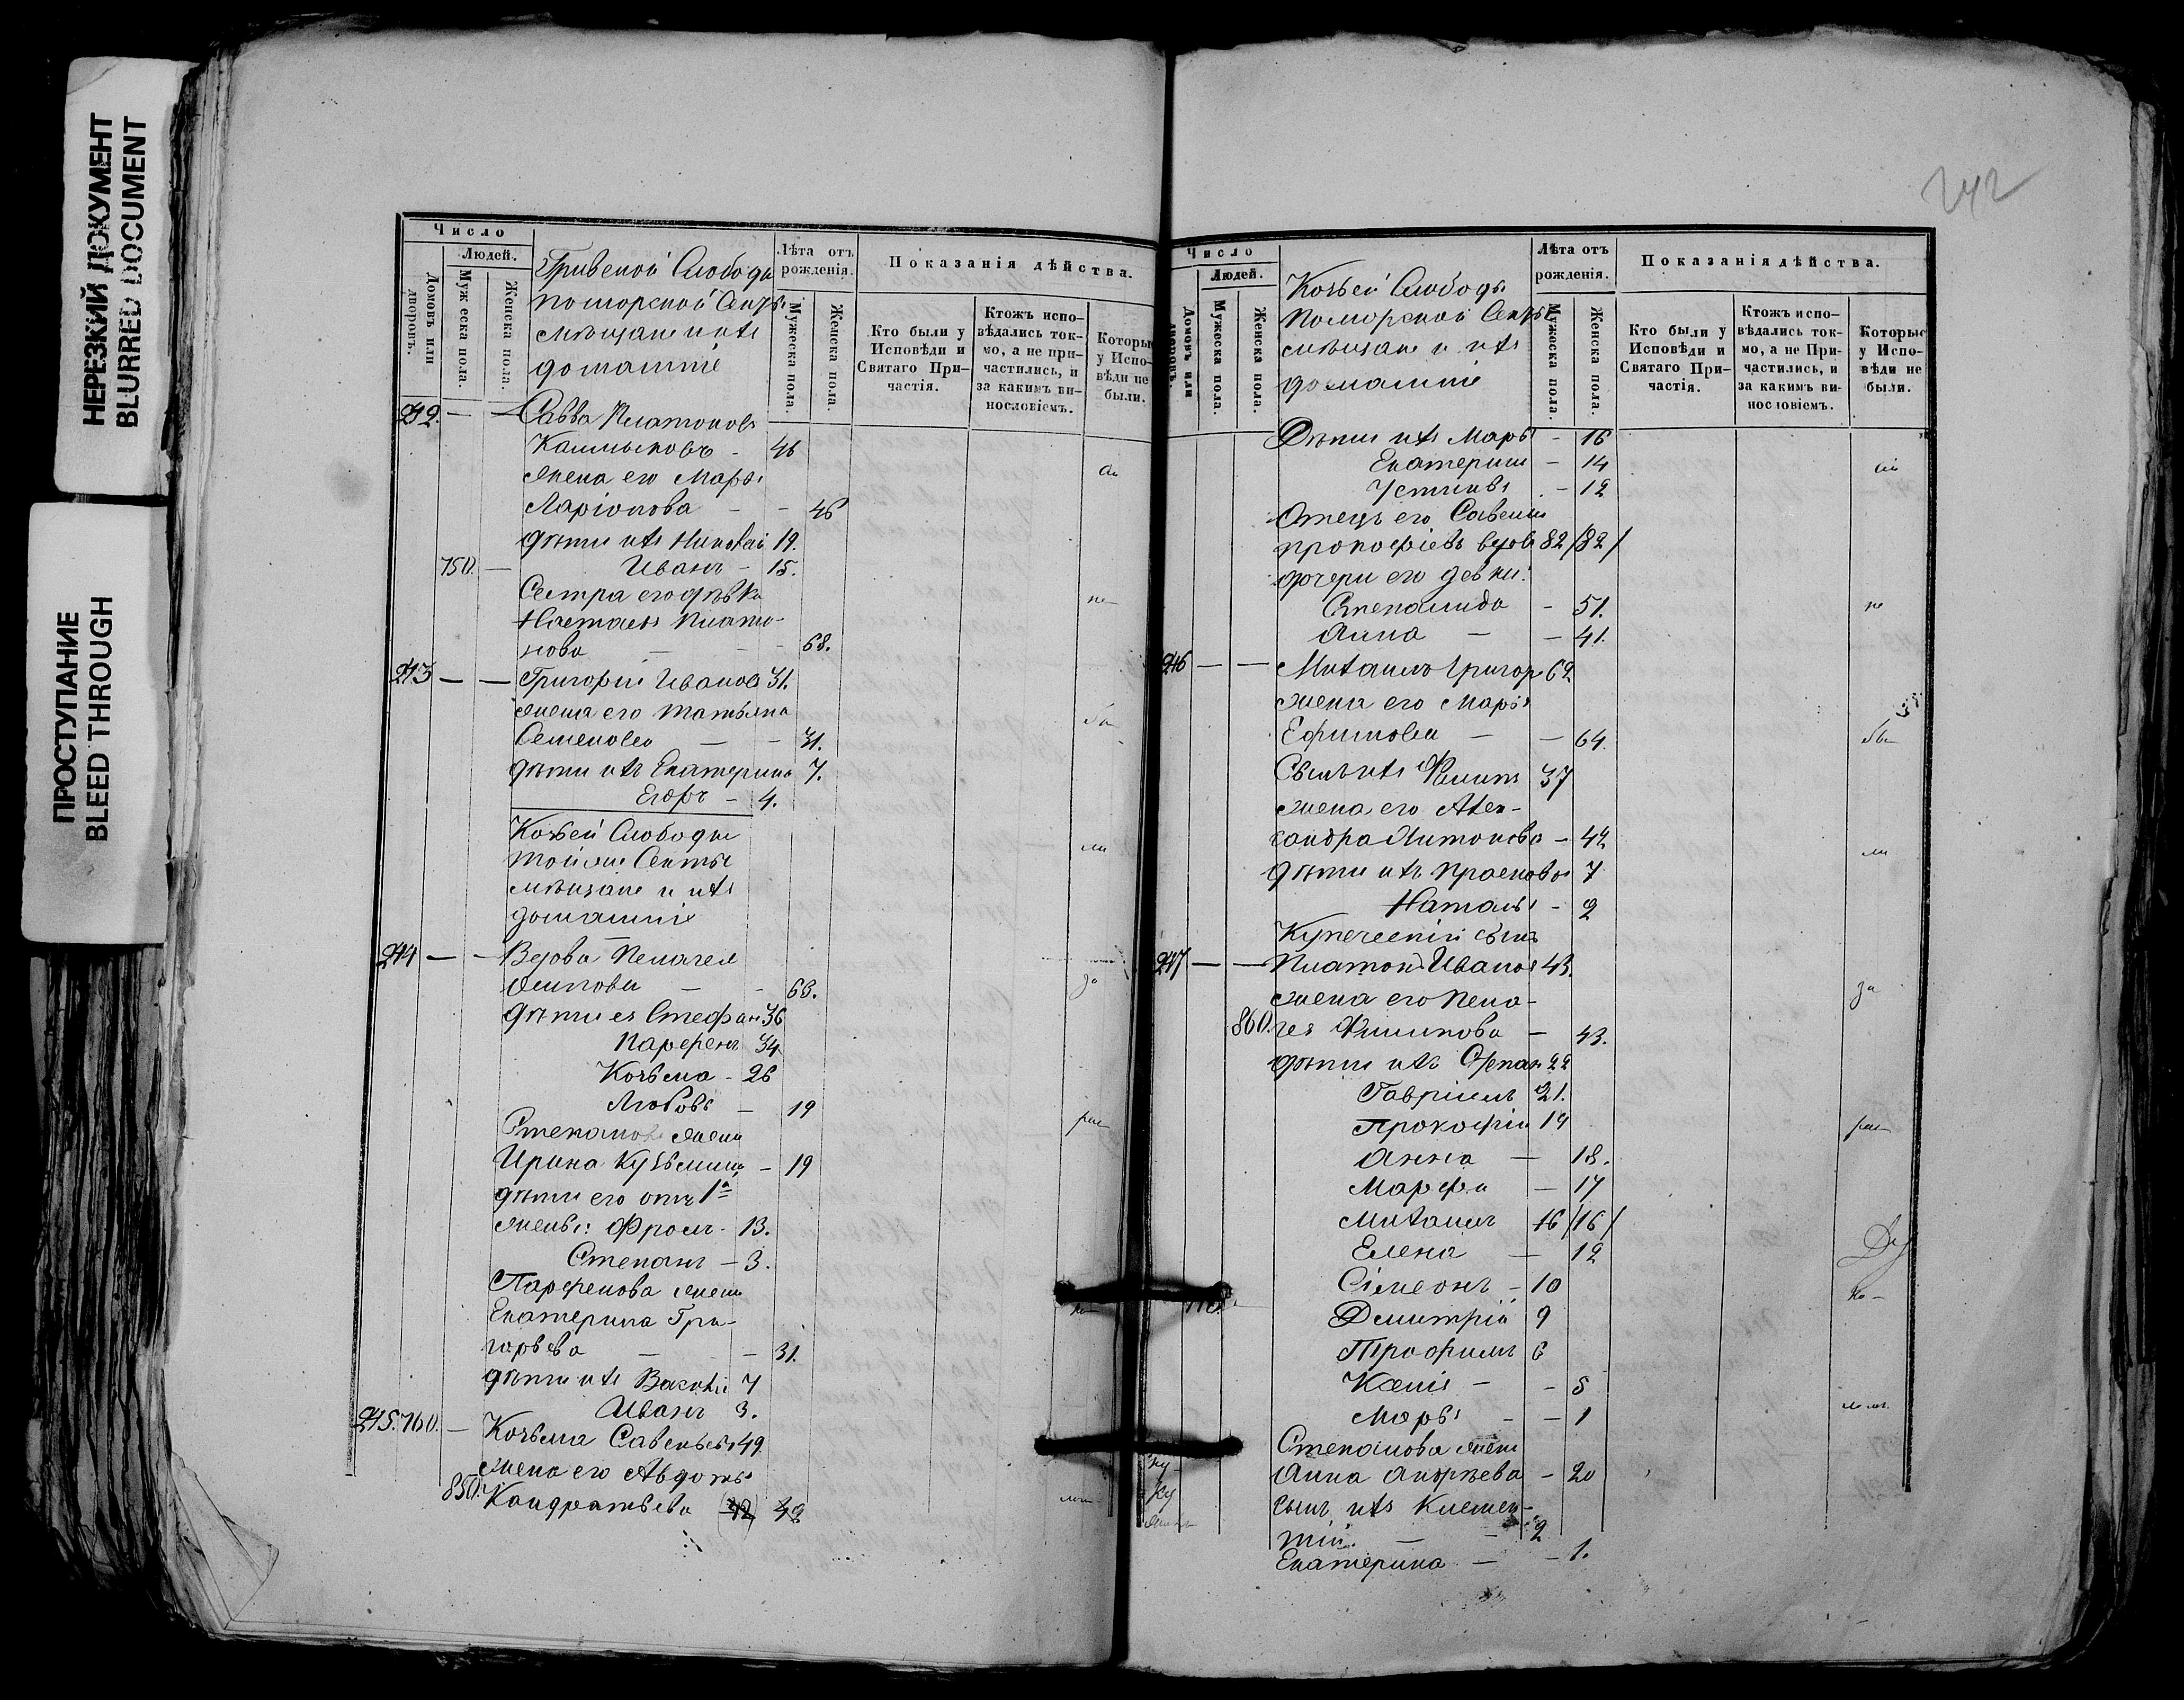 НЕРЕЗКИЙ ДОКУМЕНТ
BLURRED DOCUMENT
ПРОСТУПАНИЕ
BLEED THROUGH
Число
Людей.
Домовъ или дворовъ.
Мужеска пола.
Женска пола.
Гривской Слободы
поморской Секты
мѣщане и ихъ
домашніе
Лѣта отъ рожденія.
Мужеска пола.
Женска пола.
Показанія дѣйства.
Кто были у Исповѣди и Святаго Причастія.
Ктожъ исповѣдались токмо, а не причастились, и за какимъ винословіемъ.
Которые у Исповѣди не были.
242. — — Савва Платоновъ
46
жена его Марья
Ларіонова — — 46
дѣти ихъ Николай 19.
750. — Иванъ — 15.
Сестра его дѣвка
Настасья Плато-
нова — — 68.
243 — — Григорій Ивановъ 31.
жена его Татьяна
Семенова — — 31.
дѣти ихъ Екатерина 7.
Егоръ — 4.
Козьей Слободы
той же Секты
мѣщане и ихъ
домашніе
244 — — Вдова Пелагея
Осипова — — 63.
дѣти ея Стефанъ 36
Парфенъ 34
Козьма - 26
Любовь — 19
Степанова жена
Ирина Кузьмина — 19
дѣти его отъ 1й
жены: Фролъ - 13.
Степанъ — 3.
Парфенова жена
Екатерина Гри-
горьева — — 31.
дѣти ихъ Василій 7
Иванъ 3.
245. 760. — Козьма Савельевъ 49
жена его Авдотья
850. Кондратьева (42) 42
не
бы
ли
за
рас
ко
242
Число
Людей.
Домовъ или дворовъ.
Мужеска пола.
Женска пола.
Козьей Слободы
Поморской Секты
мѣщане и ихъ
домашніе
Лѣта отъ рожденія.
Мужеска пола.
Женска пола.
Показанія дѣйства.
Кто были у Исповѣди и Святаго Причастія.
Ктожъ исповѣдались токмо, а не Причастились, и за какимъ винословіемъ.
Которые у Исповѣди не были.
Дѣти ихъ Марья - 16
Екатерина — 14
Устинья - 12
Отецъ его Савелій
Прокофіевъ вдовъ 82 /82/
дочери его девки:
Степанида - 51.
Анна — — 41.
246 — — Михаилъ Григор 62
жена его Марья
Ефимова — — 64.
Сынъ ихъ Филипъ 37
жена его Алек-
сандра Антонова — 42
дѣти ихъ Прасковья 7
Наталья - 2
Купеческій сынъ
247 — — Платонъ Ивановъ 43.
жена его Пела-
860. гея Филипова — 43.
дѣти ихъ Степанъ 22
Гавріилъ 21.
Прокофій 19
Анна — 18.
Марфа — 17
Михаилъ 16 /16/
Елена — 12
Сімеонъ - 10
Димитрій 9
Трофимъ 6
Ксенія — - 5
Марья - — 1
Степанова жена
Анна Андрѣева — 20
сынъ ихъ Клемен-
тій. — — 2
Екатерина — — 1.
не
бы
ли
за
рас
ко